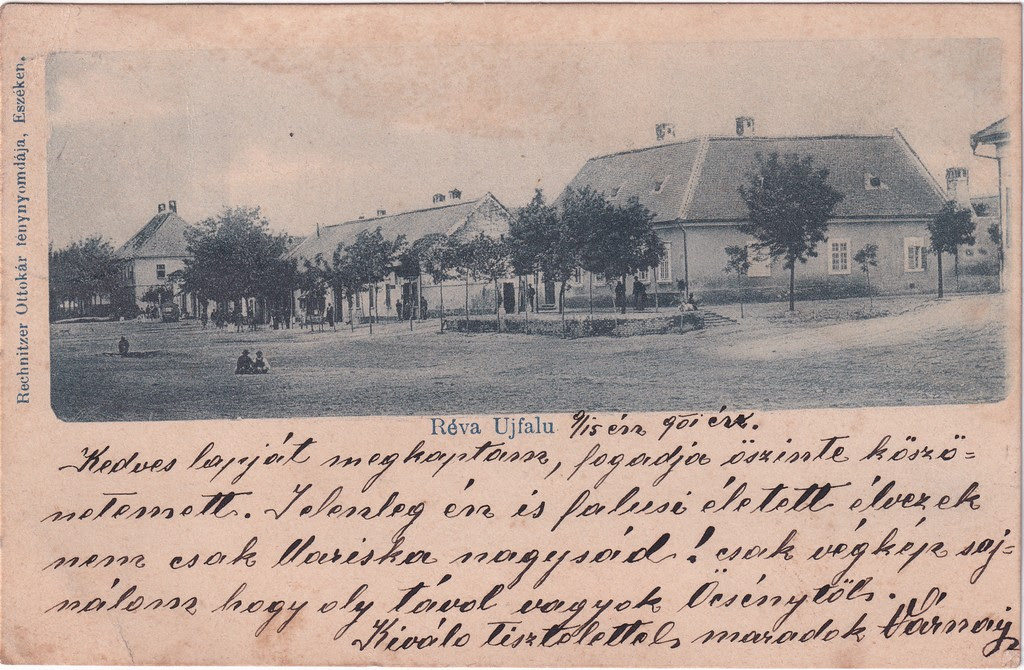 Rechnitzer Ottokár fénynyomdája, Eszéken.
Réva Ujfalu 9/15 én 901 érz.
Kedves lapját megkaptam, fogadja öszinte köszö=
netemett. Jelenleg én is falusi életett élvezek
nem csak Mariska nagysád! csak végkép saj=
nálom hogy oly távol vagyok Öcsénytöl.
Kiváló tisztelettel maradok Várnay